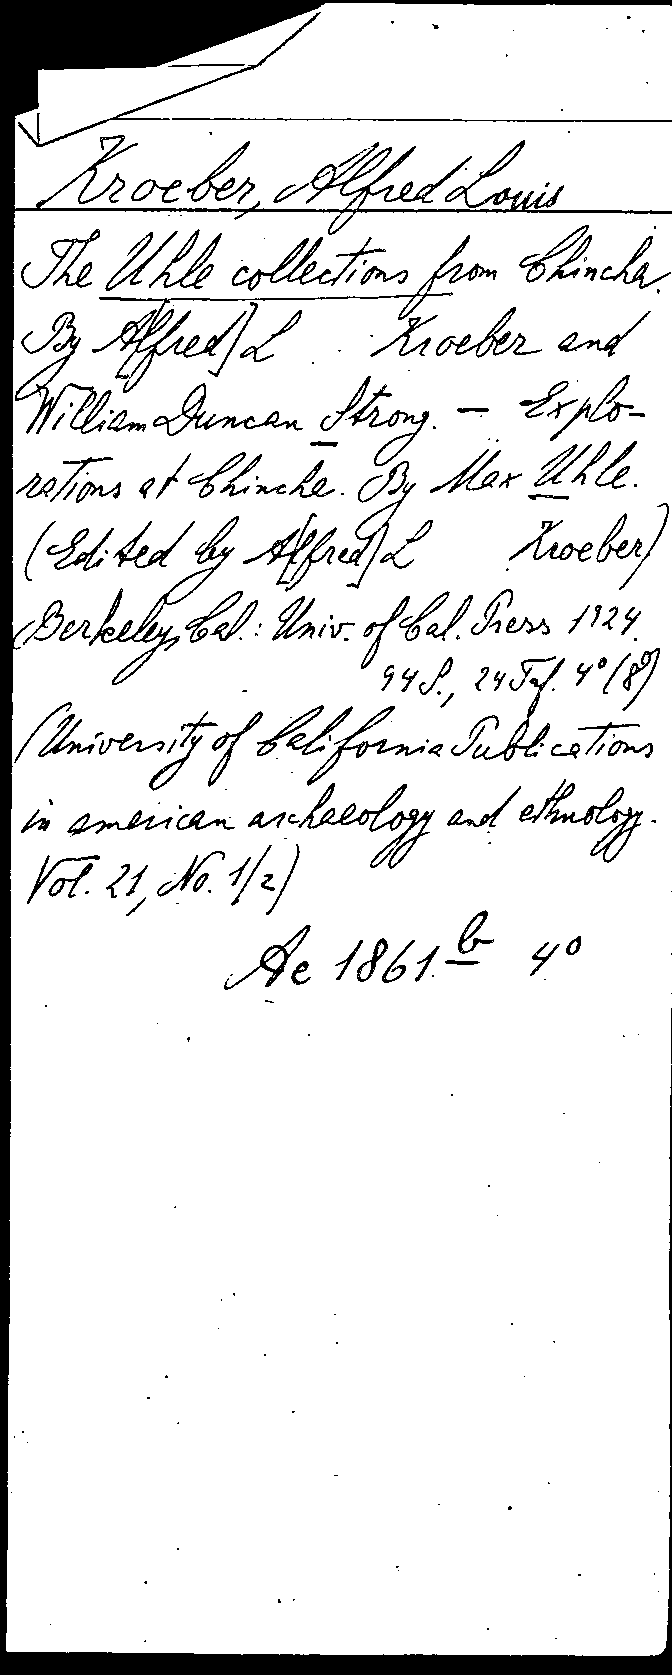 Kroeber, Alfred Louis
The Uhle collections from Chincha.
By A[lfred] L Kroeber and
William Duncan Strong. — Explo-
rations at Chincha. By Max Uhle.
(Edited by A[lfred] L Kroeber)
Berkeley, Cal.: Univ. of Cal. Press 1924.
94 S., 24 Taf. 4° (8°)
(University of California Publications
in american archaeology and ethnology.
Vol. 21, No. 1/2)
Ae 1861 b 4°